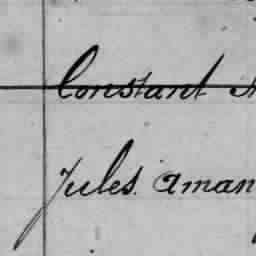 Constant
Jules. aman